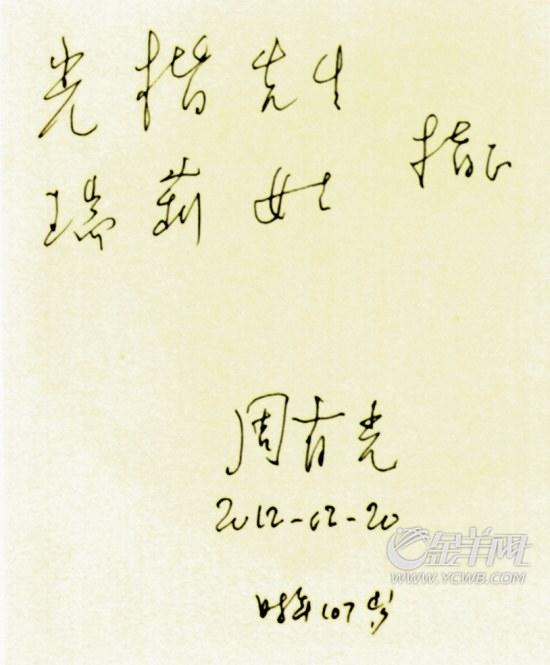 光楷先生
瑞莉女士
指正
周有光
2012-02-20
时年107岁
金羊网
WWW.YCWB.COM